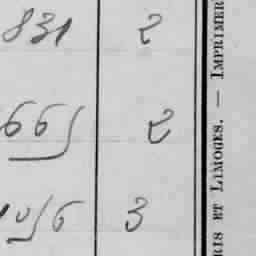 831 2
665 2
1056 3
RIS ET LIMOGES. — IMPRIMER